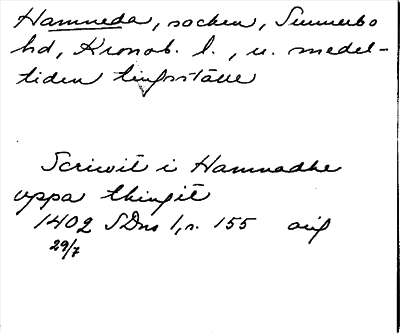 Hamneda, socken, Sunnerbo
hd, Kronob. l., u. medel-
tiden tingsställe
Scriwit i Hamnadhe
uppa thingit
1402 SDns 1, n. 155 orig
29/7